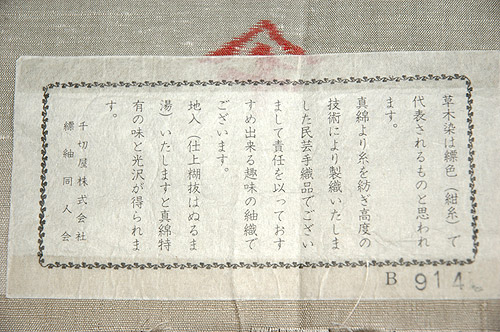 草木染は縹色(紺糸)で
代表されるものと思われ
ます。
真綿より糸を紡ぎ高度の
技術により製織いたしま
した民芸手織品でござい
まして責任を以っておす
すめ出来る趣味の紬織で
ございます。
地入、仕上糊抜はぬるま
湯)いたしますと真綿特
有の味と光沢が得られま
す。
千切屋株式会社
縹紬同人会
B 914